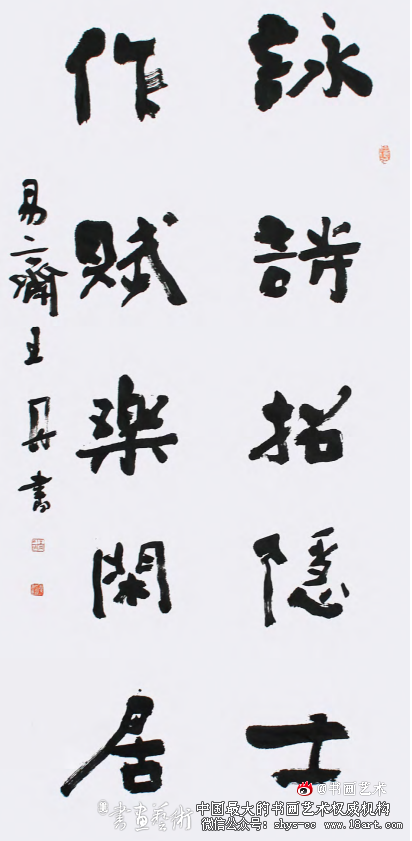 詠詩招隱士
作賦樂閑居
易 王丹書
@书画艺术
書画藝術
中国最大的书画艺术权威机构
微信公众号: shys-cc www.18art.com